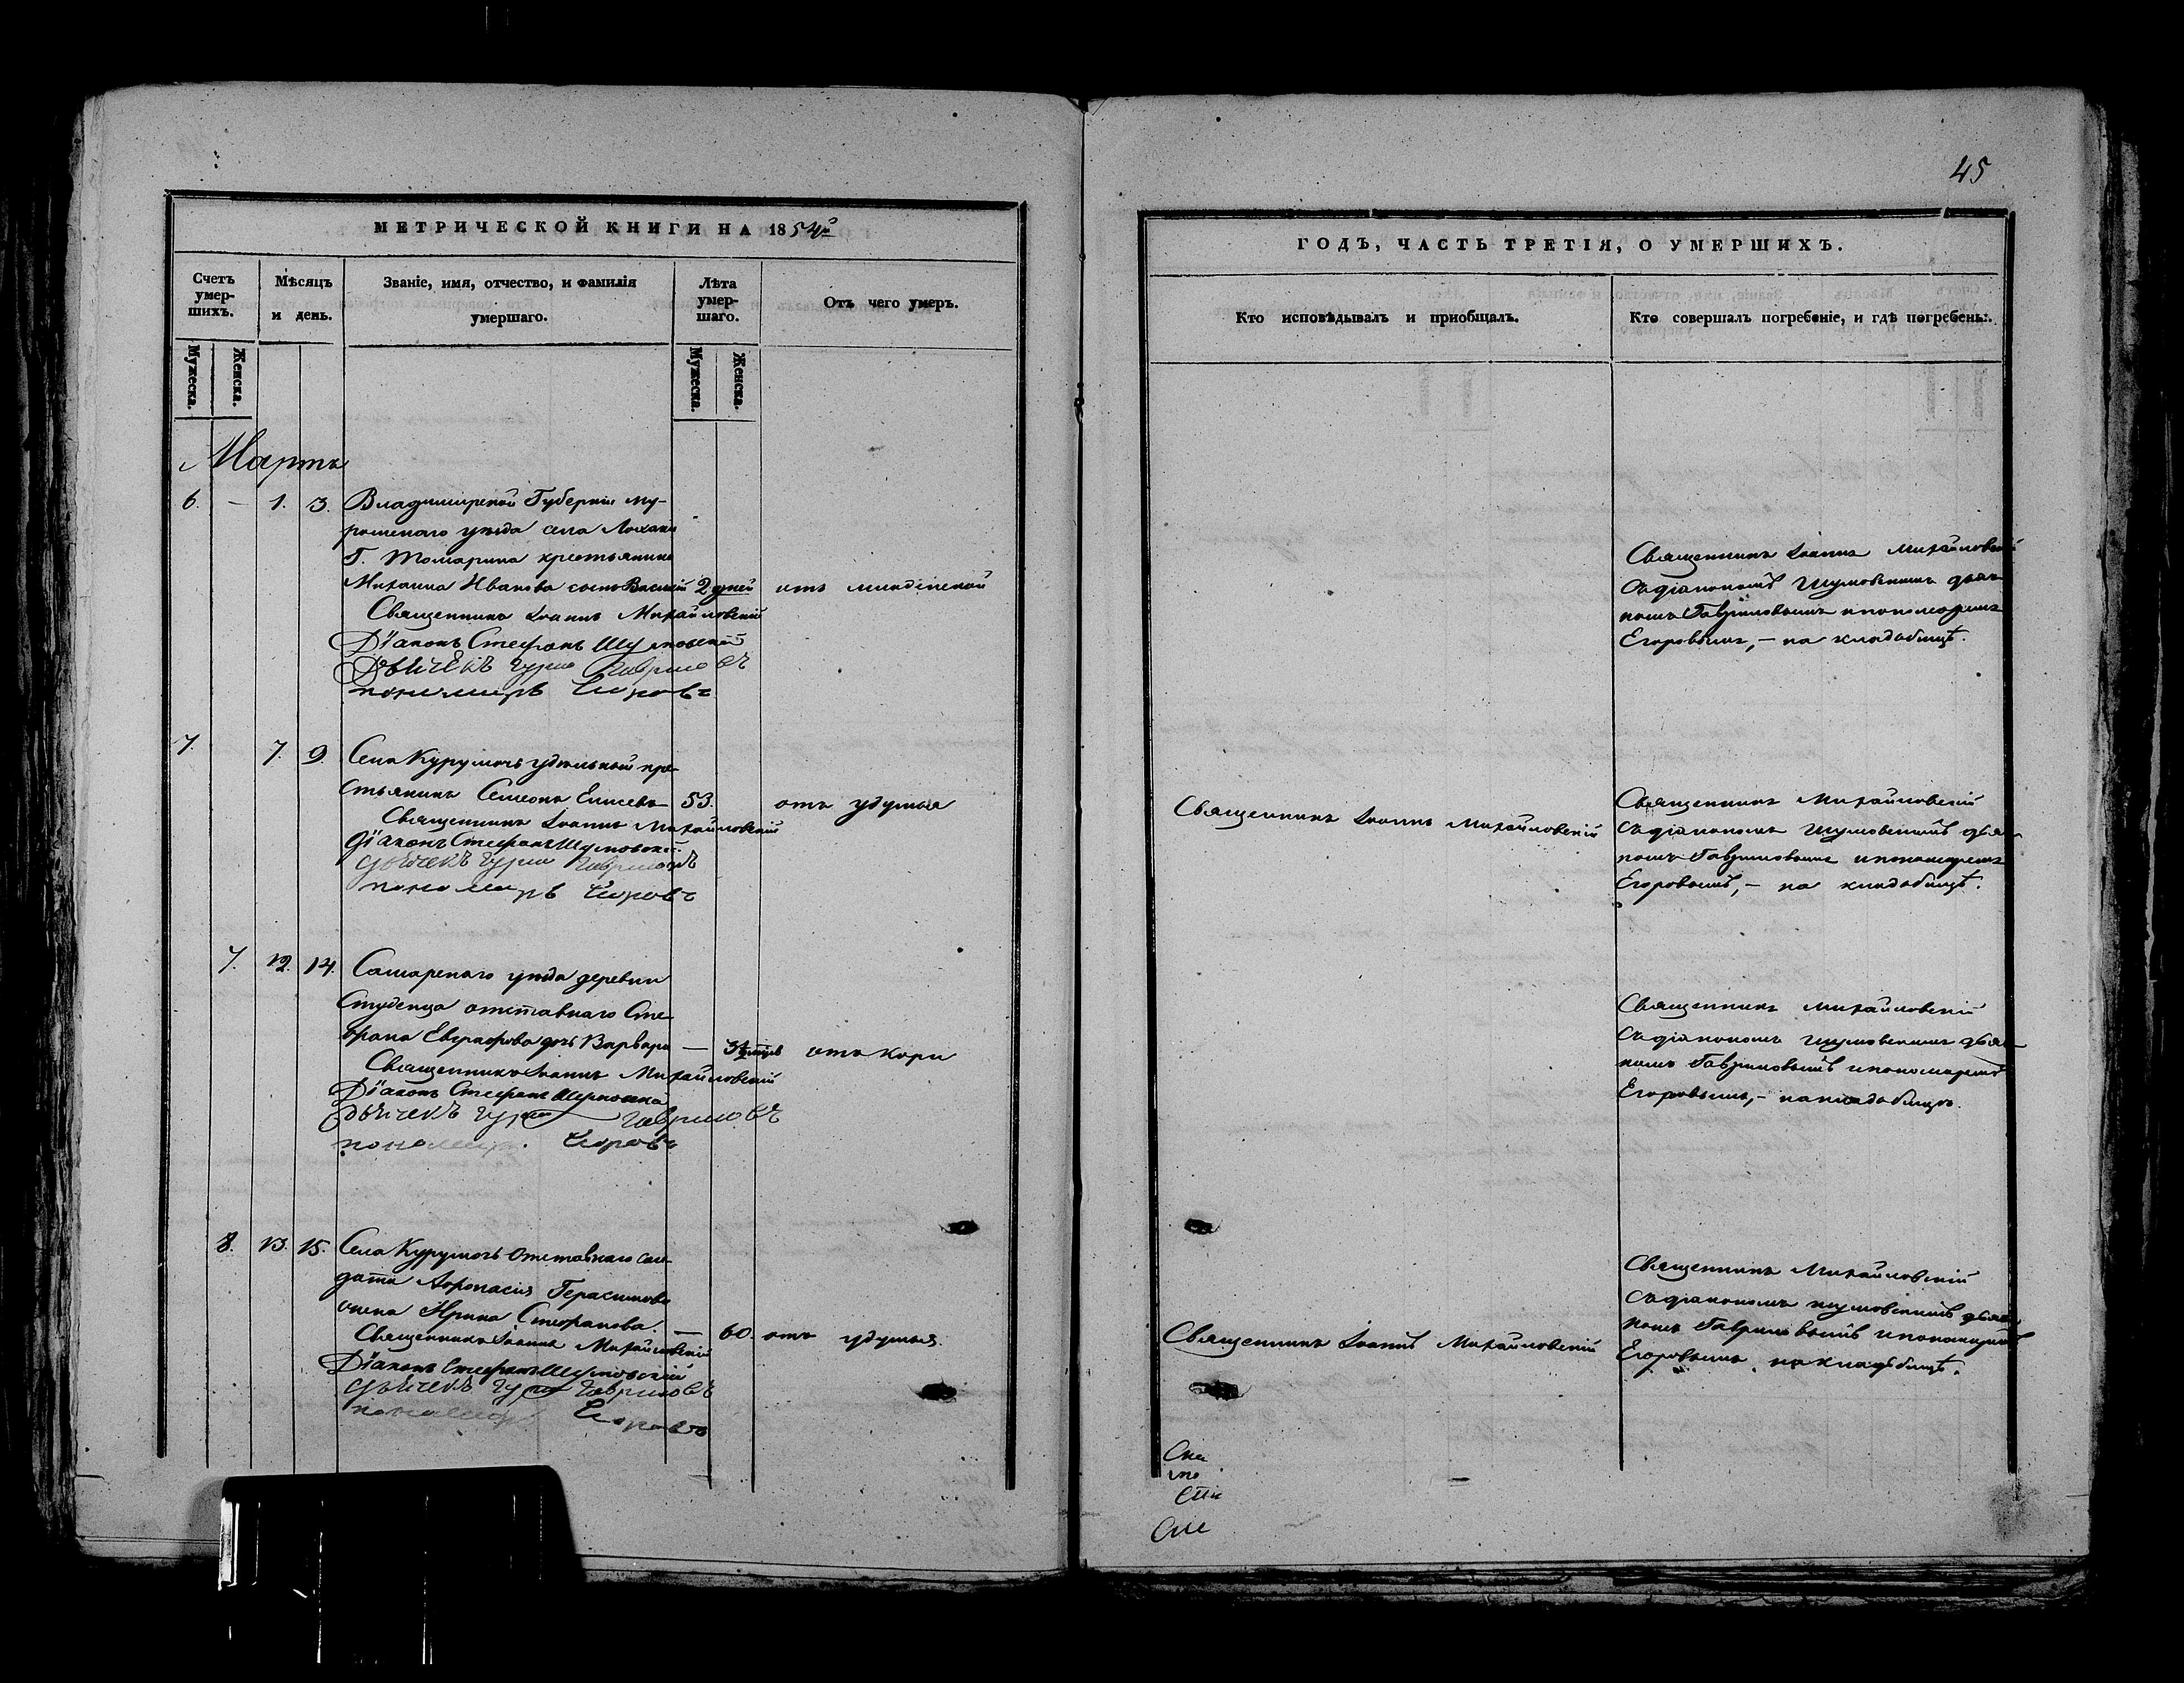 45
МЕТРИЧЕСКОЙ КНИГИ НА 1854й
Счетъ умершихъ.
Мужеска.
Женска.
Мѣсяцъ и день.
Званіе, имя, отчество, и фамилія умершаго.
Лѣта умершаго.
Мужеска.
Женска.
Отъ чего умеръ.
ГОДЪ, ЧАСТЬ ТРЕТІЯ, О УМЕРШИХЪ.
Кто исповѣдывалъ и приобщалъ.
Кто совершалъ погребеніе, и гдѣ погребены.
Мартъ
6. — 1. 3. Владимирской Губерніи Му-
ромскаго уѣзда села
Г. крестьянина
Михаила Иванова сынъ Василій 2 дней отъ младенской
Священникъ Іоаннъ Михайловскій
Діаконъ Стефанъ Шумовскій
Дьячекъ Гурій Гавриловъ
пономарь Егоровъ
Священникъ Іоаннъ Михайловскій
съ діакономъ Шумовскимъ дьяч-
комъ Гавриловымъ и пономаремъ
Егоровымъ, – на кладбищѣ.
7. 7. 9. Села Курумочь удѣльный кре-
стьянинъ Симеонъ Елисеевъ 53. отъ удушья
Священникъ Іоаннъ Михайловскій
Діаконъ Стефанъ Шумовскій
дьячекъ Гурій Гавриловъ
пономарь Егоровъ
Священникъ Іоаннъ Михайловскій
Священникъ Михайловскій
съ діакономъ Шумовскимъ дьяч-
комъ Гавриловымъ и пономаремъ
Егоровымъ, – на кладбищѣ.
7. 12. 14. Самарскаго уѣзда деревни
Студенца отставнаго Сте-
фана дочь Варвара — 3½ отъ кори
Священникъ Іоаннъ Михайловскій
Діаконъ Стефанъ
дьячекъ Гурій Гавриловъ
пономарь Егоровъ
Священникъ Михайловскій
съ діакономъ Шумовскимъ дьяч-
комъ Гавриловымъ и пономаремъ
Егоровымъ, – на кладбищѣ.
8. 13. 15. Села Курумочь отставнаго сол-
дата Афонасія Герасимова
жена Ирина Стефанова. — 60. отъ удушья.
Священникъ Іоаннъ Михайловскій
Діаконъ Стефанъ Шумовскій
дьячекъ Гурій Гавриловъ
пономарь Егоровъ
Священникъ Іоаннъ Михайловскій
Священникъ Михайловскій
съ діакономъ Шумовскимъ дьяч-
комъ Гавриловымъ и пономаремъ
Егоровымъ на кладбищѣ.